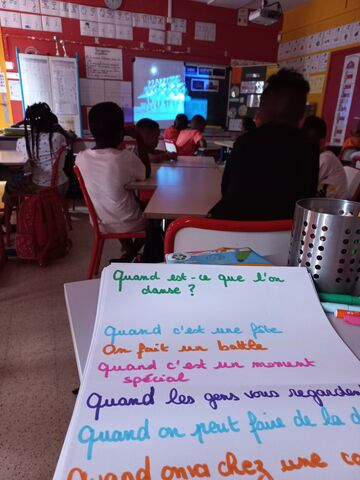 Quand est-ce que l'on
danse ?
Quand c'est une fête
On fait un battle
Quand c'est un moment
spécial
Quand les gens vous regardent
Quand on peut faire de la d
Quand on va chez une co